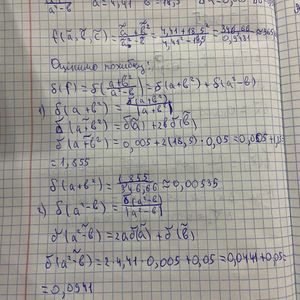 a²-b a=4,41 b=18,5
f(ã,b̃,c̃) = (ã+b̃²)/(ã²-b̃) = (4,41+18,5²)/(4,41²-18,5) = 346,66/0,9431 ≈
Оценим похибку:
δ(f) = δ((a+b²)/(a²-b)) = δ(a+b²) + δ(a²-b)
1) δ(a+b²) = Δ(a+b²)/|a+b²|
Δ(a+b²) = Δ(ã)+2bΔ(b̃)
Δ(a+b²) = 0,005+2(18,5)·0,05 = 0,005+1,85
= 1,855
δ(a+b²) = 1,855/346,66 ≈ 0,00535
2) δ(a²-b) = Δ(a²-b)/|a²-b|
Δ(a²-b) = 2aΔ(ã) + Δ(b̃)
Δ(a²-b) = 2·4,41·0,005+0,05 = 0,0441+0,05=
= 0,0941